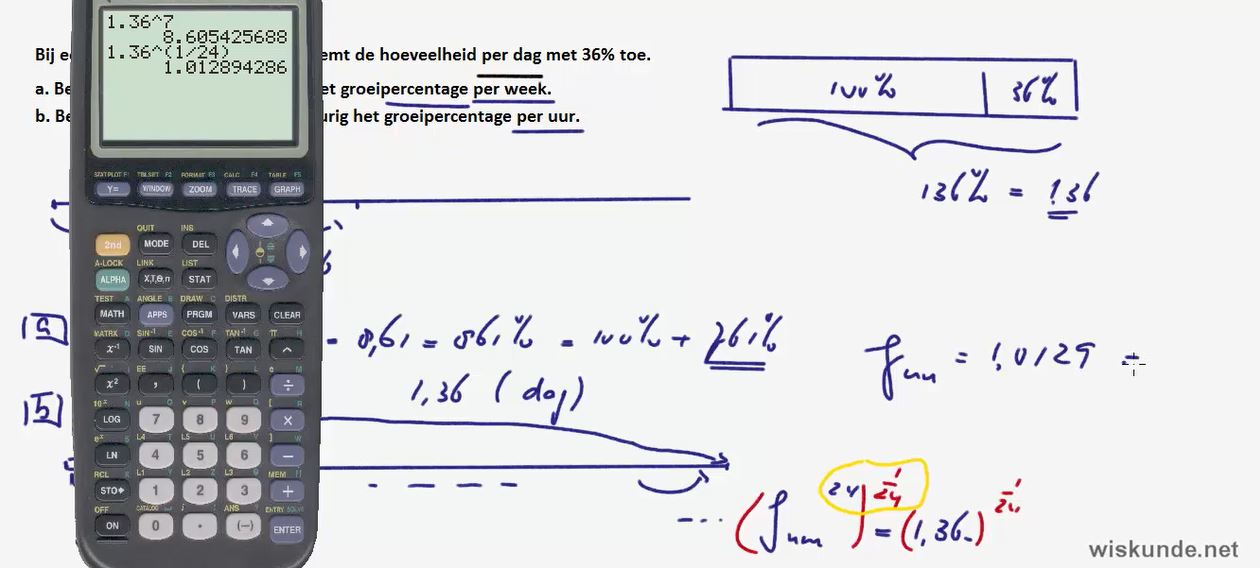 1.36^7
8.605425688
1.36^(1/24)
1.012894286
Bij e emt de hoeveelheid per dag met 36% toe.
a. Be et groeipercentage per week.
b. Be urig het groeipercentage per uur.
100% 36%
136% = 1.36
STATPLOT F1 TBLSET F2 FORMAT F3 CALC F4 TABLE F5
Y= WINDOW ZOOM TRACE GRAPH
QUIT INS
2nd MODE DEL
A-LOCK LINK LIST
ALPHA X,T,θ,n STAT
TEST A ANGLE B DRAW C DISTR
MATH APPS PRGM VARS CLEAR
MATRX D SIN⁻¹ E COS⁻¹ F TAN⁻¹ G π H
x⁻¹ SIN COS TAN ^
√ I EE J { K } L e M
x² , ( ) ÷
10ˣ N u O v P w Q [ R
LOG 7 8 9 ×
eˣ S L4 T L5 U L6 V ] W
LN 4 5 6 −
RCL X L1 Y L2 Z L3 θ MEM "
STO▸ 1 2 3 +
OFF CATALOG i : ANS ? ENTRY SOLVE
ON 0 . (−) ENTER
a = 8,61 = 861% = 100% + 761%
g uur = 1,0129 =
b 1,36 (dag)
(g uur ^24)^1/24 = (1,36)^1/24
wiskunde.net